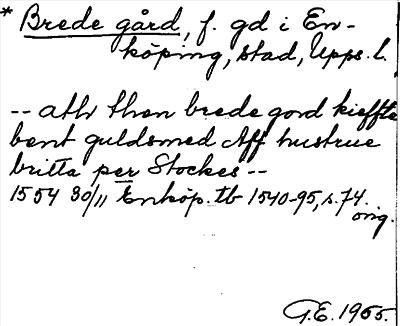 * Brede gård, f. gd i En-
köping, stad, Upps. l.
-- ath then brede gord kieffte
bent guldsmed aff hustrue
britta per Stockes --
1554 30/11 Enköp. tb 1540-95, s. 74.
orig.
G.E. 1955.